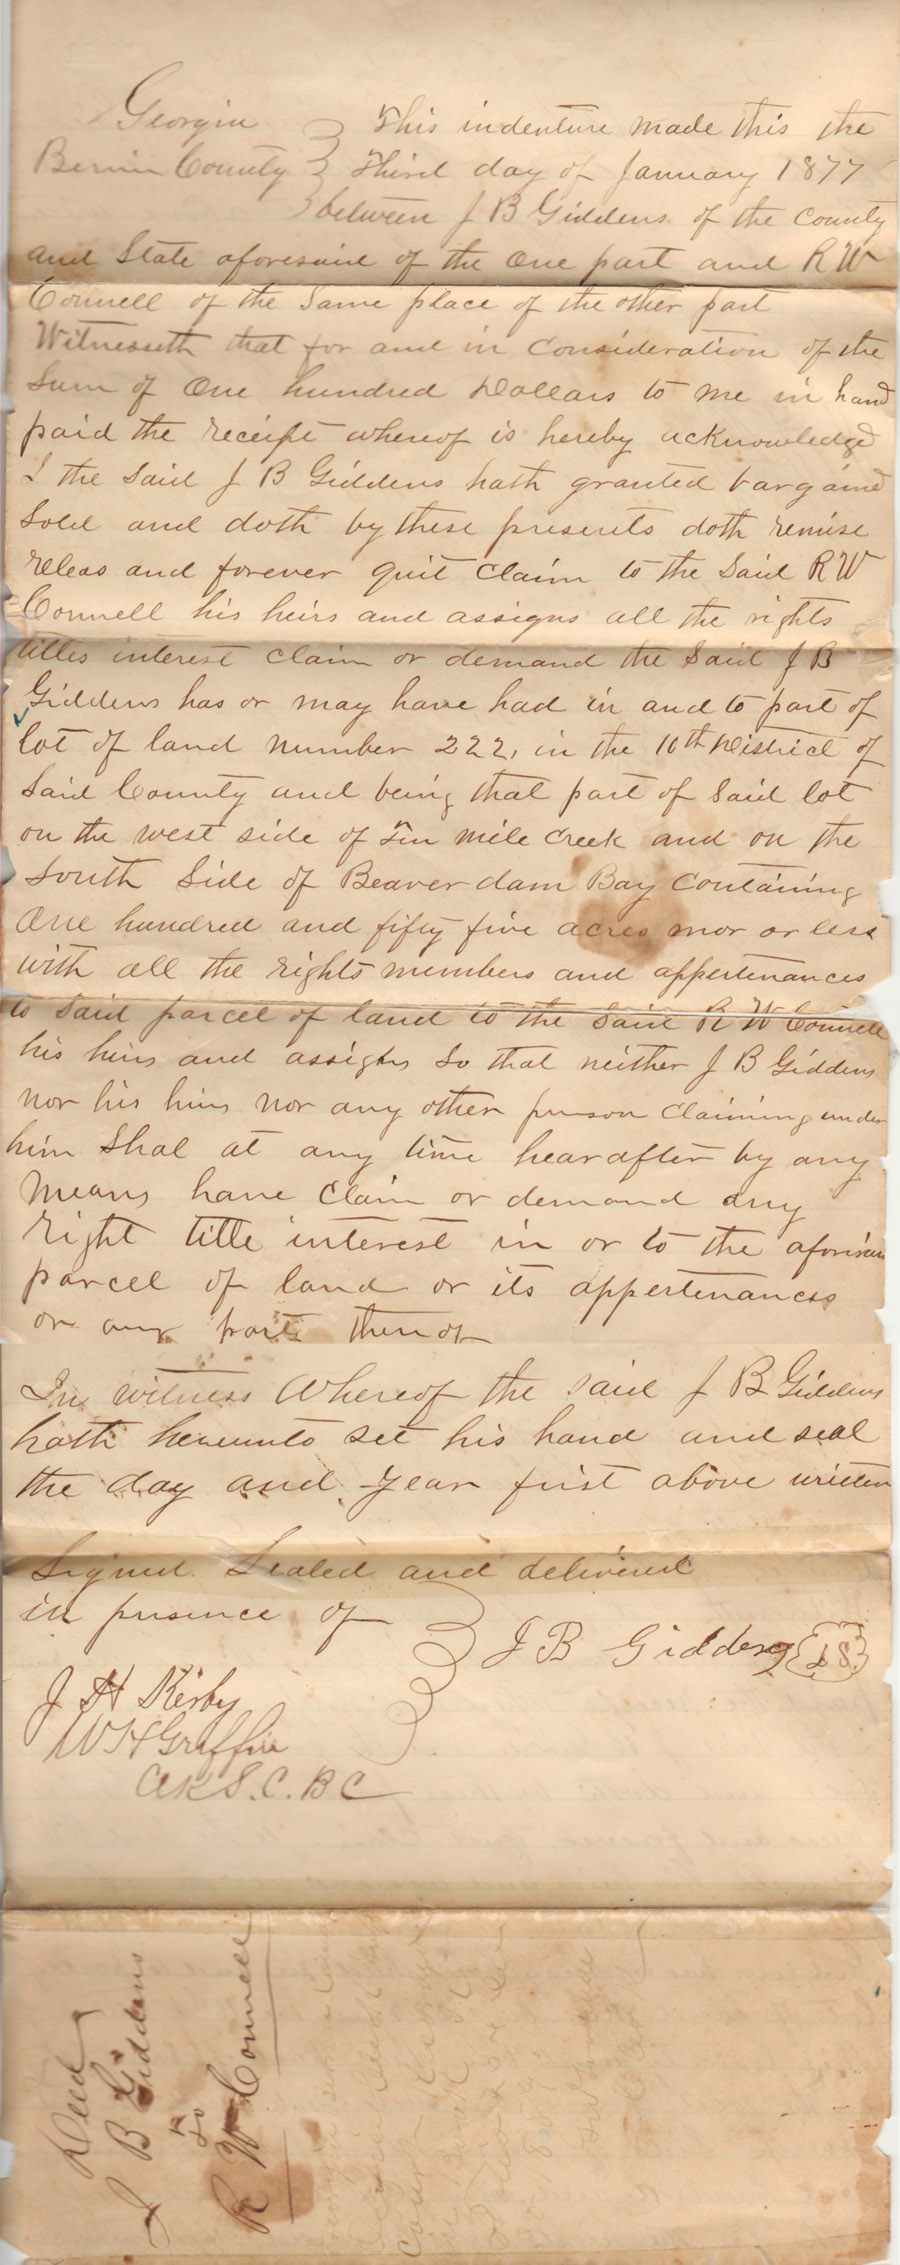 Georgia } This indenture made this the
Berrien County } Third day of January 1877
between J B Giddens of the County
and State aforesaid of the One part and R W
Connell of the Same place of the other part
Witnesseth that for and in Consideration of the
Sum of One hundred Dollars to me in hand
paid the receipt whereof is hereby acknowledged
I the Said J B Giddens hath granted bargained
Sold and doth by these presents doth remise
releas and forever quit Claim to the Said R W
Connell his heirs and assigns all the rights
titles interest claim or demand the Said J B
Giddens has or may have had in and to part of
lot of land number 222, in the 10th District of
Said County and being that part of Said lot
on the west side of Ten mile Creek and on the
South Side of Beaver dam Bay Containing
One hundred and fifty five acres mor or less
with all the rights members and appertenances
to said parcel of land to the Said R W Connell
his heirs and assighs So that neither J B Giddens
nor his heirs nor any other person Claiming under
him Shal at any time hearafter by any
means have Claim or demand any
right title interest in or to the aforesaid
parcel of land or its appertenances
or any part thereof
In witness Whereof the said J B Giddens
hath hereunto set his hand and seal
the day and year first above written
Signed Sealed and delivered
in presence of
J B Giddens {LS}
J H Kirby
W H Griffin
Clk S.C. B C
Deed
J B Giddens
To
R W Connell